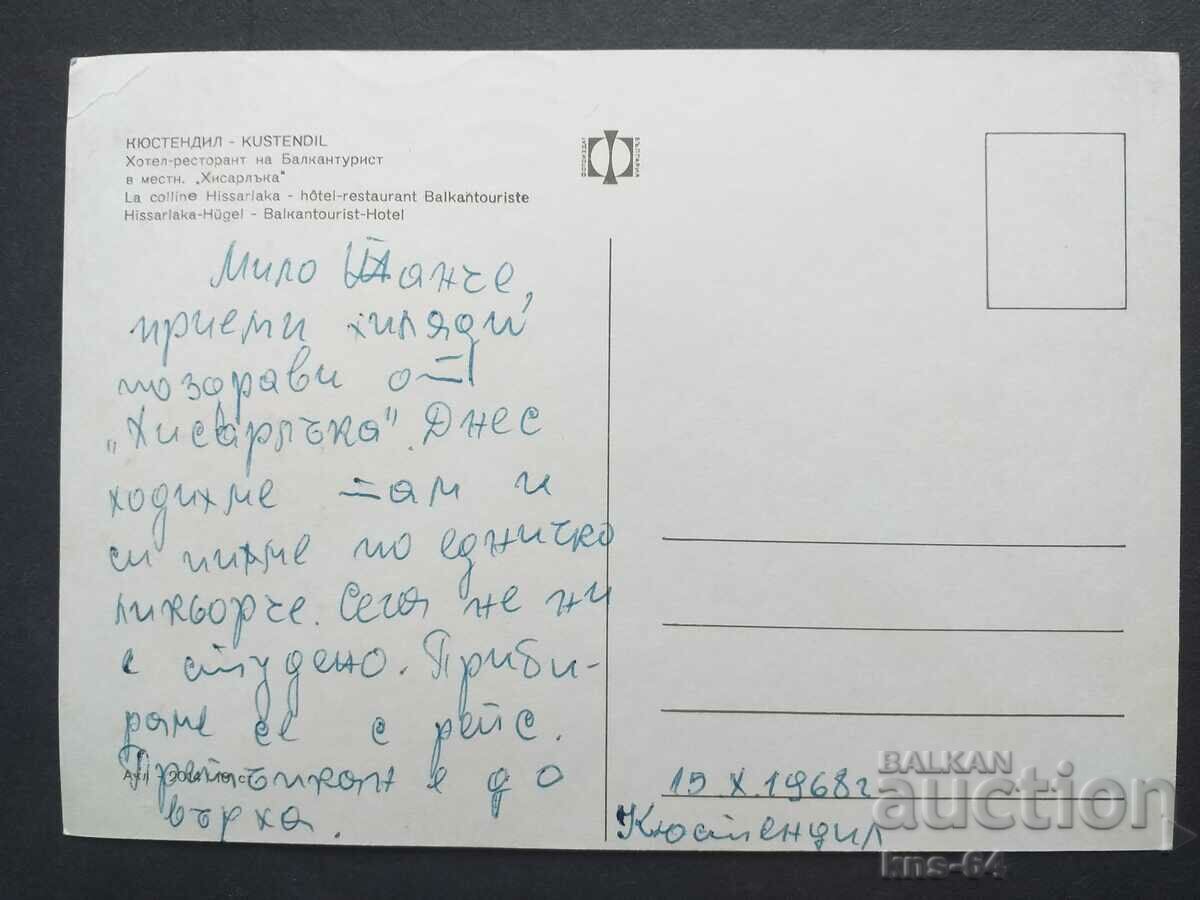 КЮСТЕНДИЛ - KUSTENDIL
Хотел-ресторант на Балкантурист
в местн. „Хисарлъка"
La colline Hissarlaka - hôtel-restaurant Balkantouriste
Hissarlaka-Hügel - Balkantourist-Hotel
Мило анче,
приеми хиляди
поздрави от
„Хисарлъка". Днес
ходихме там и
си пихме по едничко
ликьорче. Сега не ни
е студено. Приби-
раме се с рейс.
е до
върха.
15.X.1968 г.
Кюстендил
BALKAN
auction
kns-64